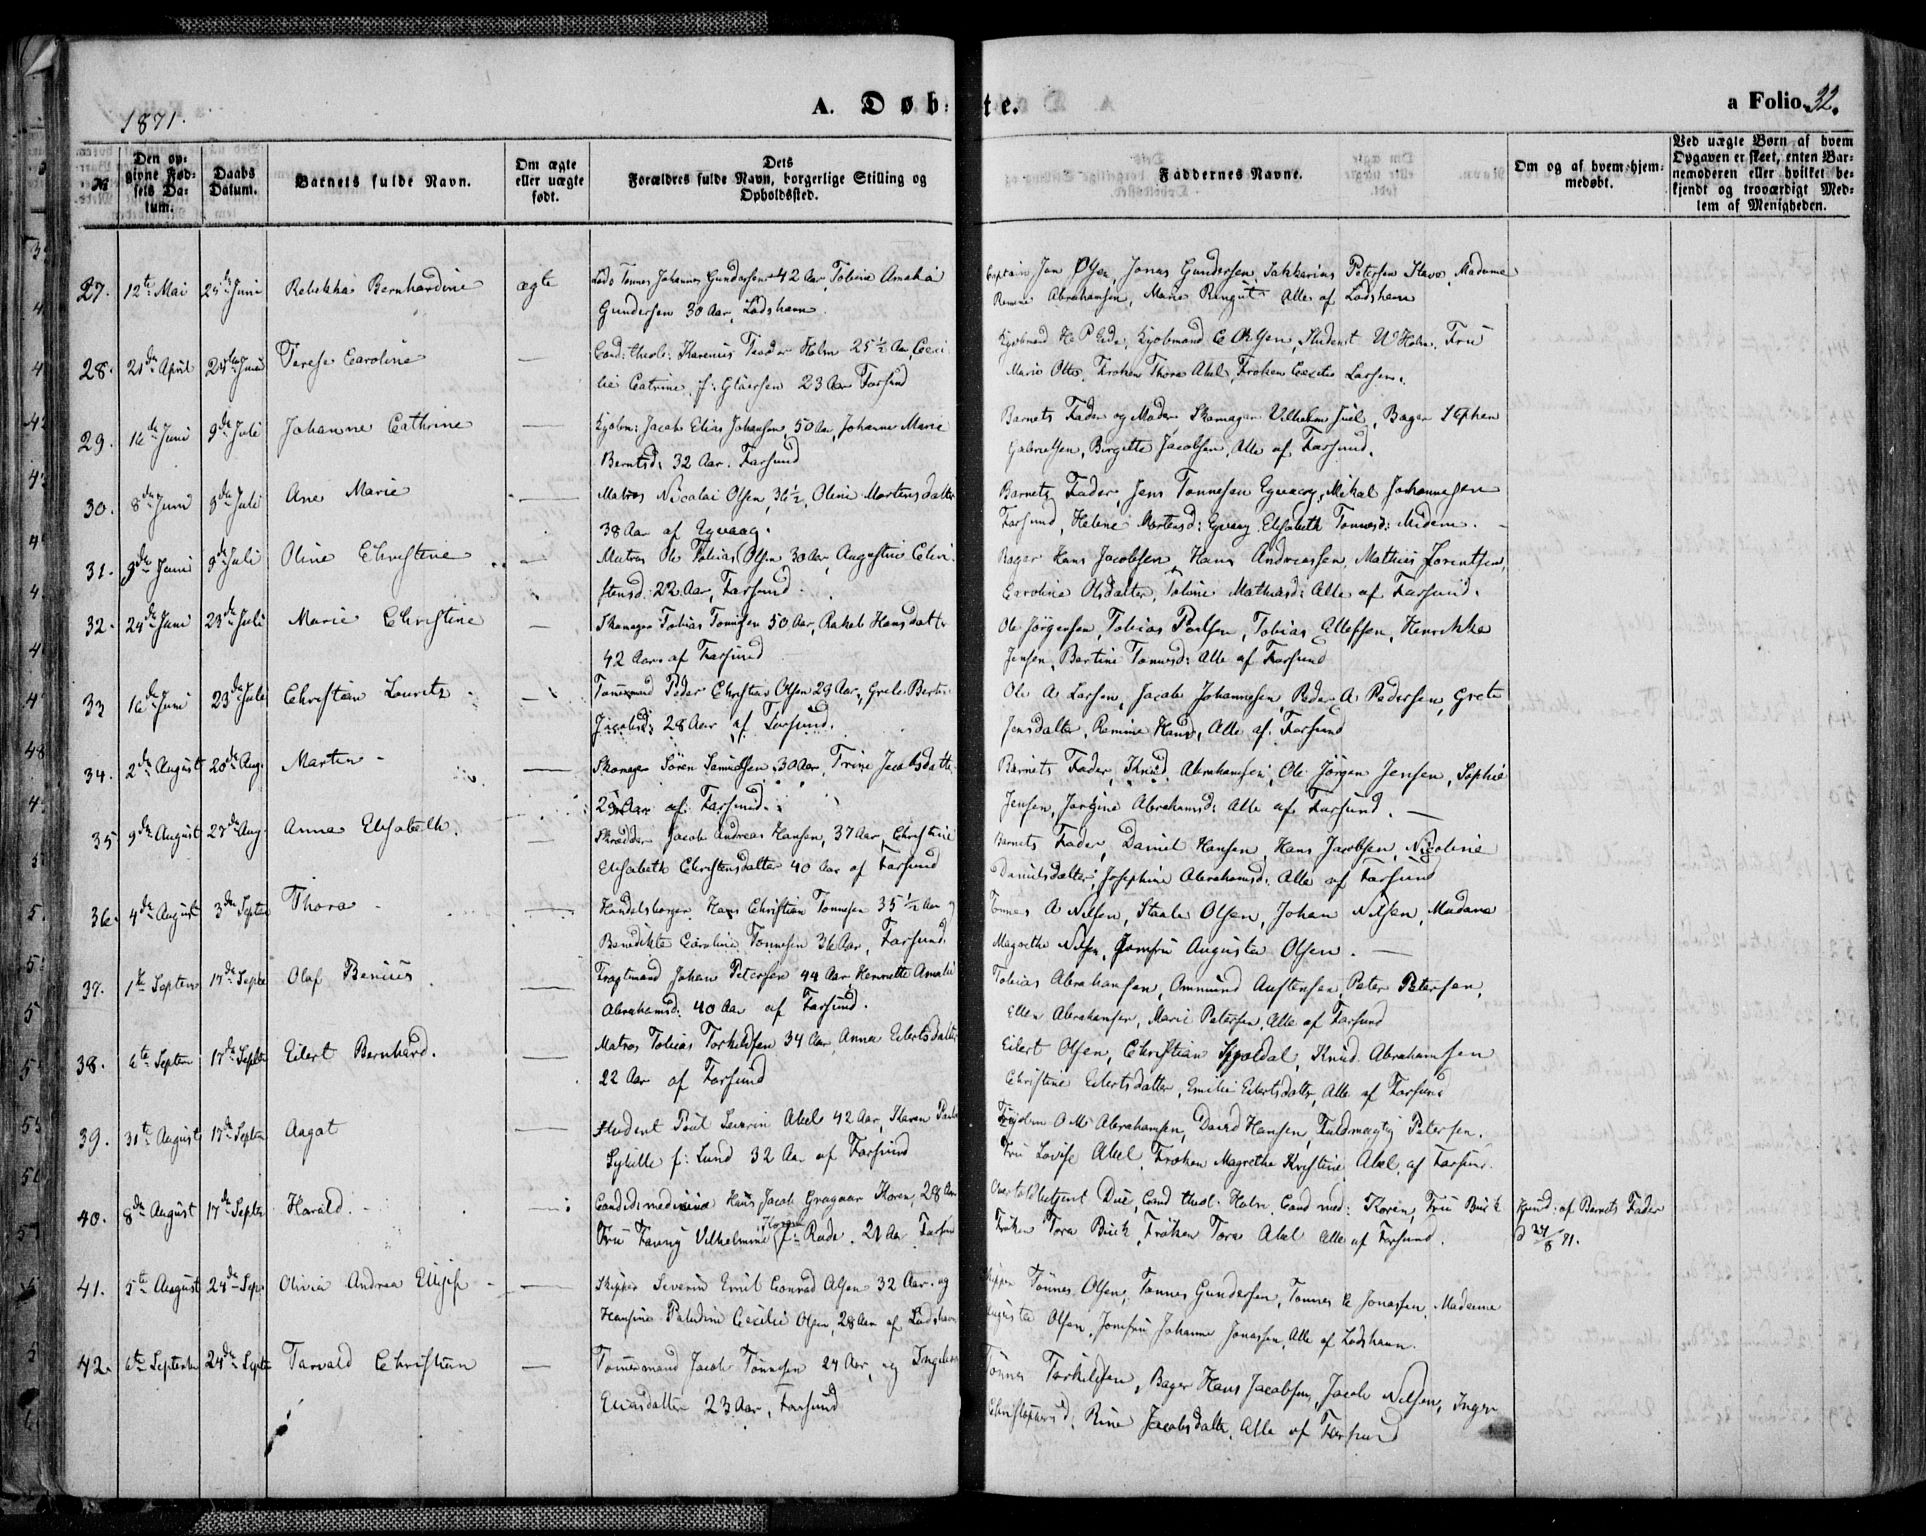 1871.
A. Døbte.
a Folio 32.
№
Den opgivne Fødsels Datum.
Daabs Datum.
Barnets fulde Navn.
Om ægte eller uægte født.
Dets Forældres fulde Navn, borgerlige Stilling og Opholdssted.
Faddernes Navne.
Om og af hvem hjemmedøbt.
Ved uægte Børn af hvem Opgaven er skeet, enten Barnemoderen eller hvilket bekjendt og troværdigt Medlem af Menigheden.
27. 12te Mai 25de Juni Rebekka Bernhardine ægte Lods Tønnes Johannes Gundersen 42 Aar Tobine Amalia
Gundersen 30 Aar, Lodshavn.
Captain Jon Olsen, Jonas Gundersen, Sakkarias Petersen Stave, Madame
Abrahamsen, Marie Alle af Lodshavn
28. 21de April 24de Juni Terese Caroline — Cand: theol: Karenius Teodor Holm 25½ Aar, Cecilie Catrine f: Gläersen 23 Aar Farsund
Kjøbmand H P Eide, Kjøbmand C Olsen, Student W Holm, Fru
Marie Otto, Frøken Thora Abel, Frøken Cecilie Larsen.
29. 16de Juni 9de Juli Johanne Cathrine — Kjøbm: Jacob Elias Johansen 50 Aar, Johanne Marie
Berntsd: 32 Aar. Farsund
Barnets Fader og Moder Skomager Vilhelm Juel, Bager Stephen
Gabrielsen, Birgitte Jacobsen, Alle af Farsund.
30. 8de Juni 9de Juli Ane Marie — Matros Nicolai Olsen, 36½, Oline Mortensdatter
38 Aar af Eyvaag.
Barnets Fader, Jens Tønnesen Eyvaag, Mikal Johannesen
Farsund, Helene Mortensd: Eyvaag Elisabeth Tønnesd:
31. 9de Juni 9de Juli Oline Christine — Matros Ole Tobias Olsen 30 Aar, Augustine Christensd: 22 Aar, Farsund.
Bager Hans Jacobsen, Hans Andreassen, Mathias Lorentsen,
Caroline Olsdatter, Tobine Mathiasd: Alle af Farsund.
32. 24de Juni 23de Juli Marie Christine — Skomager Tobias Tønnesen 50 Aar, Rakel Hansdatter
42 Aar af Farsund
Ole Jørgensen, Tobias Poulsen, Tobias Ellefsen, Henrikke
Jensen, Bertine Tønnesd: Alle af Farsund
33 16de Juni 23de Juli Christian Lauritz — Tømmermand Peder Christian Olsen 29 Aar, Grete Bertine
Jacobsd: 28 Aar af Farsund.
Ole A Larsen, Jacob Johannesen, Peder A Pedersen, Grete
Jensdatter, Alle af Farsund
34. 2de August 20de Aug. Martin — Skomager Søren Samuelsen 30 Aar, Trine Jacobsdatter
29 Aar af Farsund.
Barnets Fader, Knud Abrahamsen, Ole Jørgen Jensen, Sophie
Jensen, Jørgine Abrahamsd: Alle af Farsund.
35 9de August 27de Aug. Anna Elisabeth. Skrædder Jacob Andreas Hansen, 37 Aar, Christine
Elisabeth Christensdatter 40 Aar af Farsund
Barnets Fader, Daniel Hansen, Hans Jacobsen, Nicoline
Danielsdatter, Josephine Abrahamsd: Alle af Farsund
36. 4de August 3de Septem Thora — Handelsborger Hans Christian Tønnesen 35½ Aar og
Benedikte Caroline Tønnesen 36 Aar, Farsund.
Tønnes A Nilsen, Staale Olsen, Johan Nilsen, Madame
Magrethe Nilsen, Jomfru Augusta Olsen.
37. 1te Septem 17de Septem Olaf Benius — Fragtmand Johan Petersen 44 Aar, Henriette Amalie
Abrahamsd: 40 Aar af Farsund.
Tobias Abrahamsen, Ommund Austensen, Peter Petersen,
Ellen Abrahamsen, Marie Petersen, Alle af Farsund
38. 6te Septem 17de Septem Eilert Bernhard. — Matros Tobias Torkildsen 34 Aar Anna Eilertsdatter
22 Aar af Farsund
Eilert Olsen, Christian, Knud Abrahamsen
Christine Eilertsdatter, Emilie Eilertsdatter, Alle af Farsund
39. 31te August 17de Septem Aagot — Student Poul Severin Abel 42 Aar, Karen
Sybille f: Lund 32 Aar af Farsund
O M Abrahamsen, David Hansen, Fuldmægtig Petersen.
Fru Lovise Abel, Frøken Magrethe Kristine Abel, af Farsund.
40. 8de August 17de Septem Harald. — Candid: medicinæ Hans Jacob Koren, 28 Aar
Fru Fanny Vilhelmine Koren f: Rode. 21 Aar. Farsund
Overtoldbetjent Due, Cand theol: Holm, Cand med: Koren, Fru Buck
Frøken Tora Buck, Frøken Tora Abel Alle af Farsund.
Hjemd: af Barnets Fader
d 24/8 71.
41. 5te August 24de Sep. Olivia Andrea — Skipper Severin Emil Conrad Olsen 32 Aar og
Hansine Paludine Cecilie Olsen, 28 Aar af Lodshavn
Skipper Tønnes Olsen, Tønnes Gundersen, Tønnes C Jonassen, Madame
Augusta Olsen, Jomfru Johanne Jonassen, Alle af Lodshavn.
42. 6te September 24de Septem Tarvald Christian — Tømmermand Jacob Tønnesen 24 Aar, og Ingeborg
23 Aar, Farsund
Tønnes Torkildsen, Bager Hans Jacobsen, Jacob Nilsen, Inger
Christophersd: Rine Jacobsdatter, Alle af Farsund